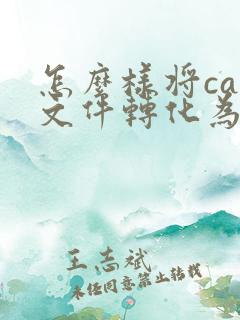 怎麼樣將ca
文件轉化為
王志斌
未經同意禁止轉載